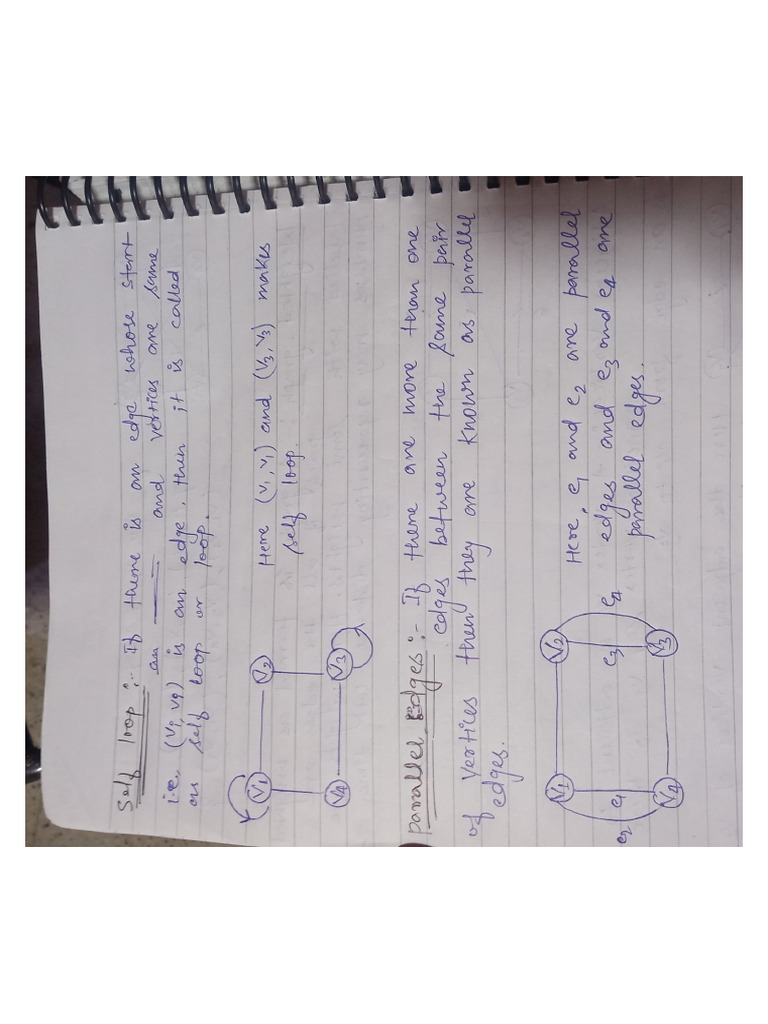 Self loop :- If there is an edge whose start
an and vertices are same
i.e., (vi, vi) is an edge, then it is called
as self loop or loop.
V1 V2
V4 V3
Here (v1, v1) and (v3, v3) makes
self loop.
parallel edges :- If there are more than one
edges between the same pair
of vertices then they are known as parallel
edges.
V1 V2
e2 e1 e3 e4
V4 V3
Here, e1 and e2 are parallel
edges and e3 and e4 are
parallel edges.